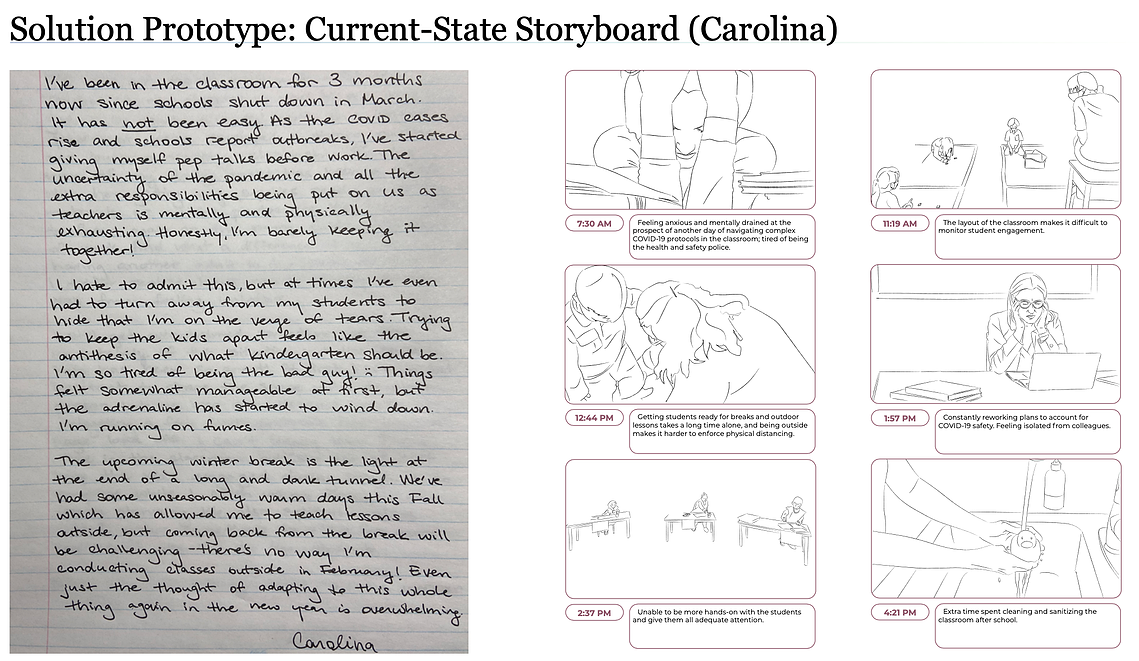 Solution Prototype: Current-State Storyboard (Carolina)
I've been in the classroom for 3 months
now since schools shut down in March.
It has not been easy. As the COVID cases
rise and schools report outbreaks, I've started
giving myself pep talks before work. The
uncertainty of the pandemic and all the
extra responsibilities being put on us as
teachers is mentally and physically
exhausting. Honestly, I'm barely keeping it
together!
I hate to admit this, but at times I've even
had to turn away from my students to
hide that I'm on the verge of tears. Trying
to keep the kids apart feels like the
antithesis of what kindergarten should be.
I'm so tired of being the bad guy! :( Things
felt somewhat manageable at first, but
the adrenaline has started to wind down.
I'm running on fumes.
The upcoming winter break is the light at
the end of a long and dark tunnel. We've
had some unseasonably warm days this Fall
which has allowed me to teach lessons
outside, but coming back from the break will
be challenging - there's no way I'm
conducting classes outside in February! Even
just the thought of adapting to this whole
thing again in the new year is overwhelming.
Carolina
7:30 AM
Feeling anxious and mentally drained at the
prospect of another day of navigating complex
COVID-19 protocols in the classroom; tired of being
the health and safety police.
11:19 AM
The layout of the classroom makes it difficult to
monitor student engagement.
12:44 PM
Getting students ready for breaks and outdoor
lessons takes a long time alone, and being outside
makes it harder to enforce physical distancing.
1:57 PM
Constantly reworking plans to account for
COVID-19 safety. Feeling isolated from colleagues.
2:37 PM
Unable to be more hands-on with the students
and give them all adequate attention.
4:21 PM
Extra time spent cleaning and sanitizing the
classroom after school.